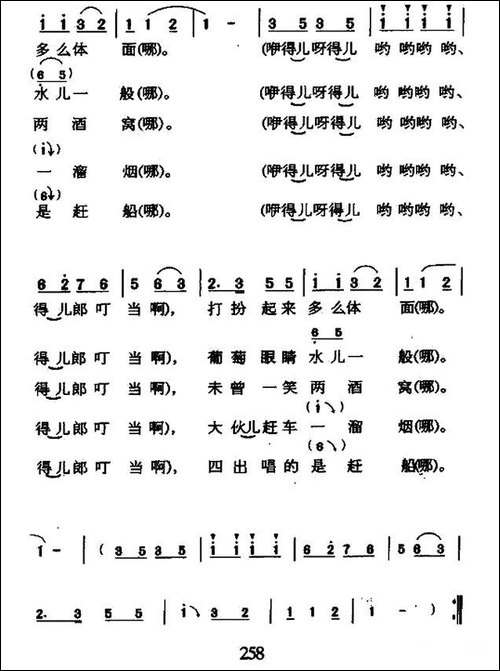 i i 3 2 | 1 1 2 | 1 - | 3 5 3 5 | i i i i |
多么体 面(哪)。 (咿得儿呀得儿 哟 哟哟哟、
(6 5)
水儿一 般(哪)。 (咿得儿呀得儿 哟 哟哟哟、
两 酒 窝(哪)。 (咿得儿呀得儿 哟 哟哟哟、
(i↘)
一 溜 烟(哪)。 (咿得儿呀得儿 哟 哟哟哟、
(6↘)
是 赶 船(哪)。 (咿得儿呀得儿 哟 哟哟哟、
6 2 7 6 | 5 6 3 | 2. 3 5 5 | i i 3 2 | 1 1 2 |
得儿郎 叮 当 啊), 打 扮 起 来 多 么体 面(哪)。
6 5
得儿郎 叮 当 啊), 葡 萄 眼 睛 水 儿 一 般(哪)。
得儿郎 叮 当 啊), 未 曾 一 笑 两 酒 窝(哪)。
(i↘)
得儿郎 叮 当 啊), 大 伙儿赶 车 一 溜 烟(哪)。
(6↘)
得儿郎 叮 当 啊), 四 出 唱 的 是 赶 船(哪)。
1 - | ( 3 5 3 5 | i i i i | 6 2 7 6 | 5 6 3 |
2. 3 5 5 | i↘ 3 2 | 1 1 2 | 1 - ) :|
258